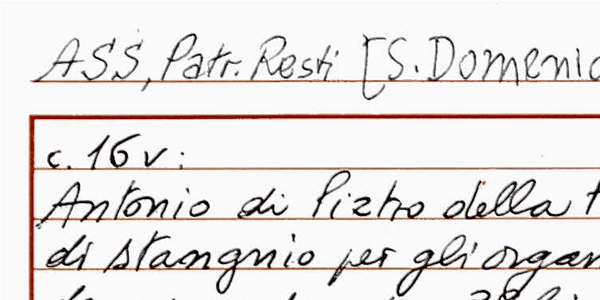 ASS, Patr. Resti [S. Domenic
c. 16 v:
Antonio di Pietro della
di stangnio per gli organ